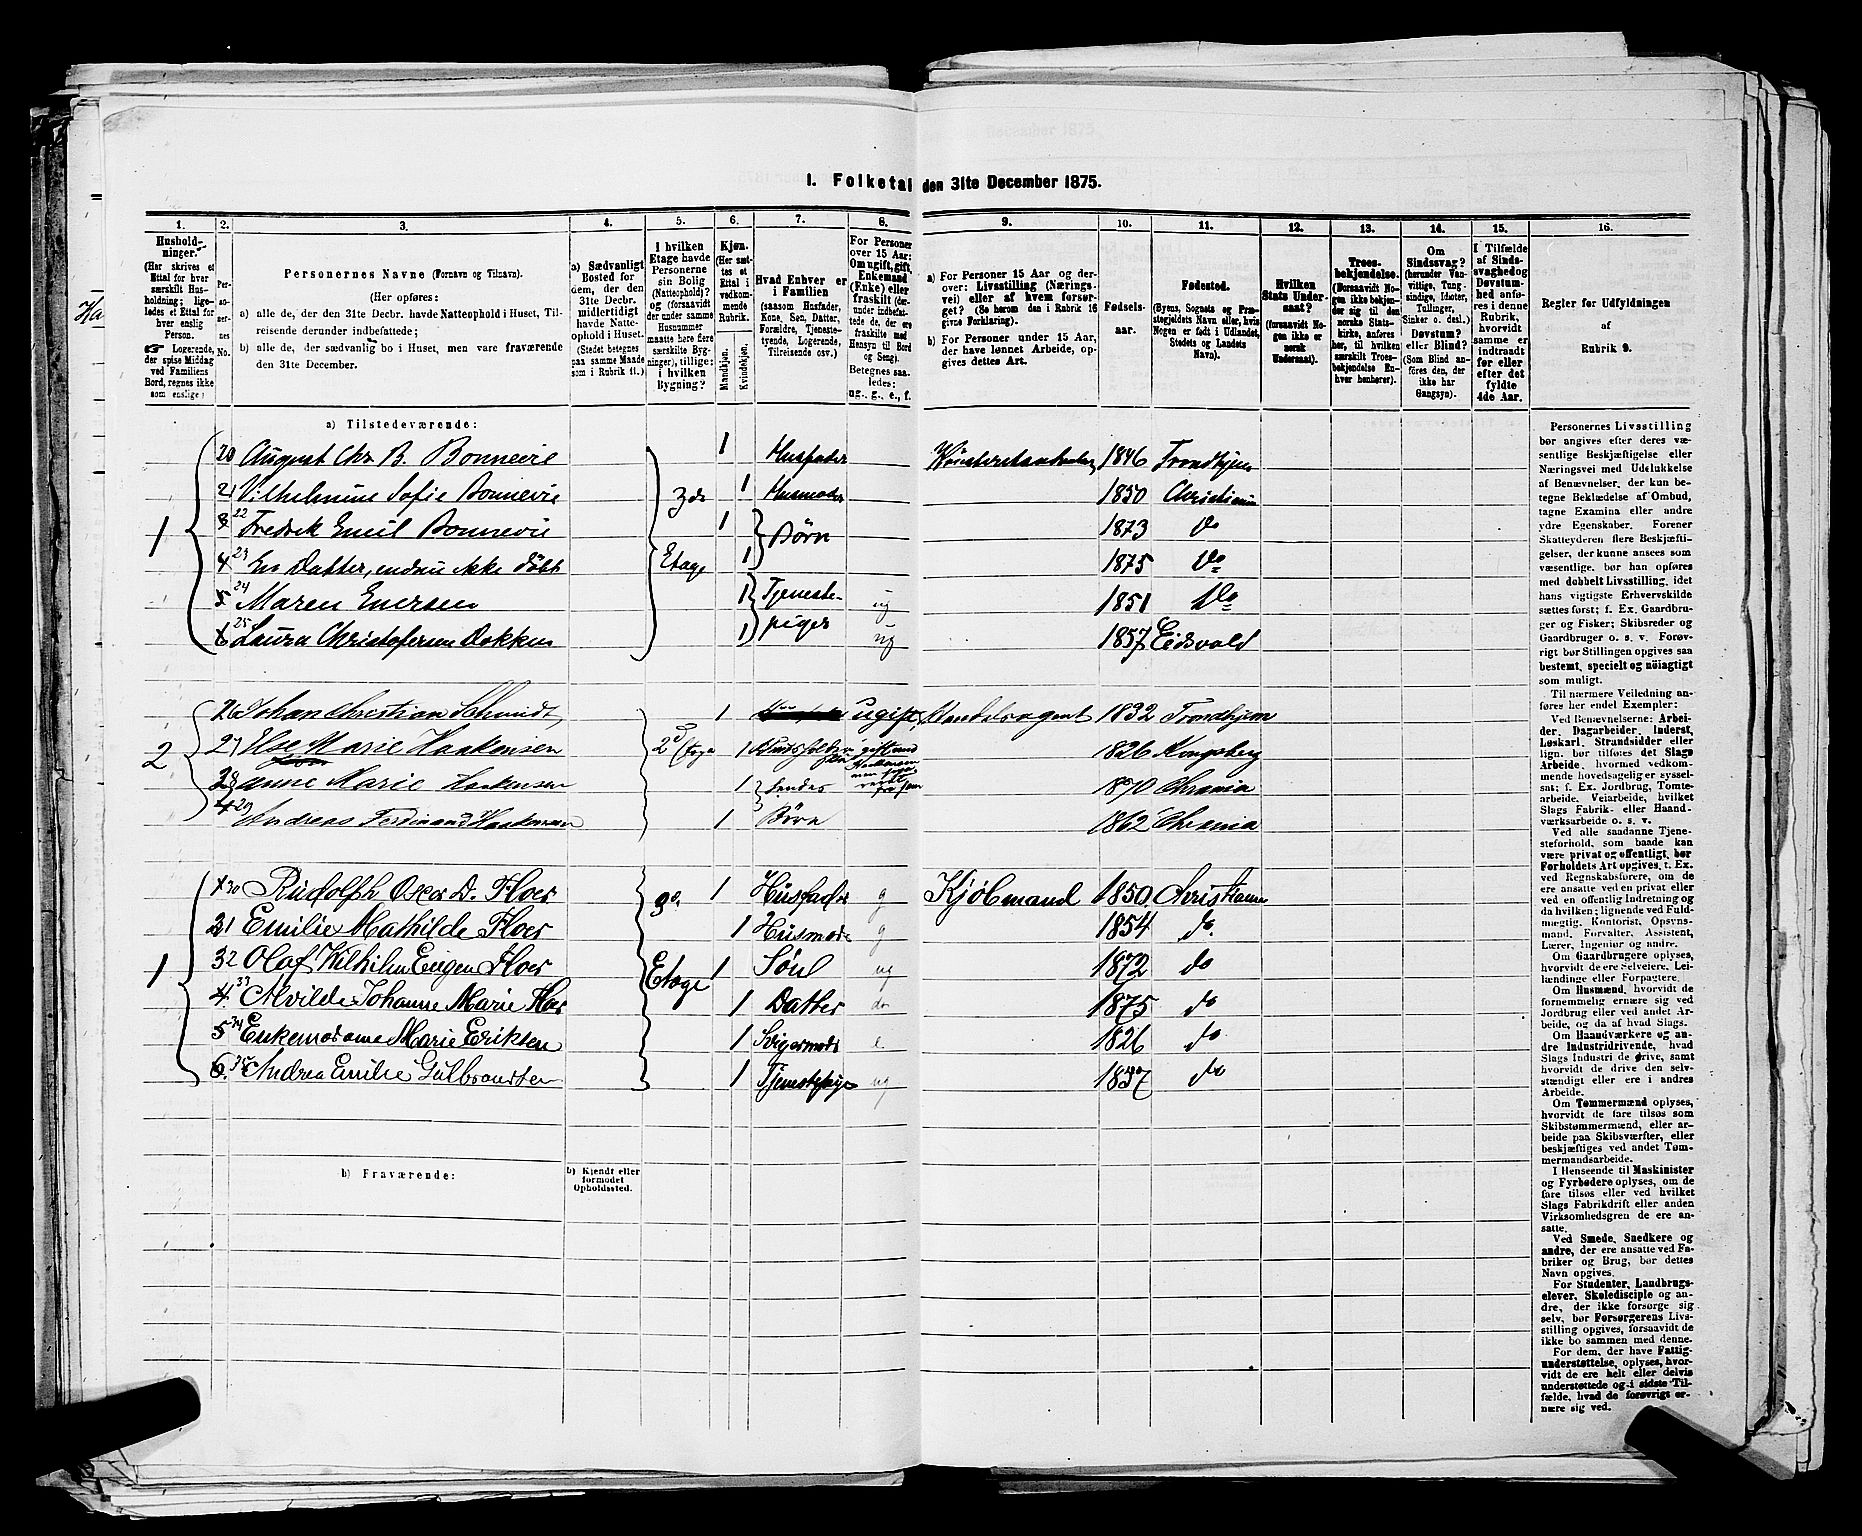 I. Folketal den 31te December 1875.
1. 2. 3. 4. 5. 6. 7. 8. 9. 10. 11. 12. 13. 14. 15. 16.
Hushold-
ninger.
(Her skrives et
Ettal for hver
særskilt Hus-
holdning; lige-
ledes et Ettal for
hver enslig
Person.
Logerende,
der spise Middag
ved Familiens
Bord, regnes ikke
som enslige)
Per-
so-
ner-
nes
No.
Personernes Navne (Fornavn og Tilnavn).
(Her opføres:
a) alle de, der den 31te Decbr. havde Natteophold i Huset, Til-
reisende derunder indbefattede;
b) alle de, der sædvanlig bo i Huset, men vare fraværende
den 31te December.
a) Sædvanligt
Bosted for
dem, der den
31te Decbr.
midlertidigt
havde Natte-
ophold i Huset.
(Stedet betegnes
paa samme Maade
som i Rubrik 11.)
I hvilken
Etage havde
Personerne
sin Bolig
(Natteophold)?
og (forsaavidt
der under samme
Husnummer
maatte høre flere
særskilte Byg-
ninger), tillige:
i hvilken
Bygning?
Kjøn.
(Her sæt-
tes et
Ettal i
vedkom-
mende
Rubrik.
Mandkjøn.
Kvindekjøn.
Hvad Enhver er
i Familien
(saasom Husfader,
Kone, Søn, Datter,
Forældre, Tjeneste-
tyende, Logerende,
Tilreisende osv.)
For Personer
over 15 Aar:
Om ugift, gift,
Enkemand
(Enke) eller
fraskilt (der-
under indbefat-
tede de, der ere
fraskilte med
Hensyn til Bord
og Seng).
Betegnes saa-
ledes:
ug., g., e., f.
a) For Personer 15 Aar og der-
over: Livsstilling (Nærings-
vei) eller af hvem forsør-
get? (Se herom den i Rubrik 16
givne Forklaring).
b) For Personer under 15 Aar,
der have lønnet Arbeide, op-
gives dettes Art.
Fødsels-
aar.
Fødested.
(Byens, Sognets og Præ-
stegjeldets Navn eller, hvis
Nogen er født i Udlandet,
Stedets og Landets
Navn).
Hvilken
Stats Under-
saat?
(forsaavidt No-
gen ikke er
norsk
Undersaat).
Troes-
bekjendelse.
(Dersaavidt No-
gen ikke bekjen-
der sig til den
norske Stats-
kirke, anføres
her, til hvilken
særskilt Troes-
bekjendelse En-
hver henhører).
Om
Sindssvag?
(herunder Van-
vittige, Tung-
sindige, Idioter,
Tullinger,
Sinker o. desl.)
Døvstum?
eller Blind?
(Som Blind an-
føres den, der
ikke har
Gangsyn).
I Tilfælde
af Sinds-
svaghed og
Døvstum-
hed anfø-
res i denne
Rubrik,
hvorvidt
samme er
indtraadt
før eller
efter det
fyldte
4de Aar.
Regler for Udfyldningen
af
Rubrik 9.
a) Tilstedeværende:
20 August Chr B. Bonnevie 1 Husfader 1846 Trondhjem
21 Vilhelmine Sofie Bonnevie 1 Husmoder 1850 Christiania
1 3 22 Fredrik Emil Bonnevie 1 Børn 1873 do
4 23 En Datter, endnu ikke døbt Etage 1 1875 do
5 24 Maren Enersen 1 Tjeneste- ug 1851 do
6 25 Laura Christofersen Dokken 1 piger ug 1857 Eidsvold
26 Johan Christian Schmidt, 1 ugift, Handelsagent 1832 Trondhjem
2 27 Else Marie Haakensen 2d Etage 1 1826 Kongsberg
28 Anne Marie Haakensen 1 1870 Chrania
29 Andreas Ferdinand Haakensen 1 Børn 1862 Chrania
30 Rudolph Oscar D. Floer 3die 1 Husfader g Kjøbmand 1850 Christiania
31 Emilie Mathilde Floer 1 Husmoder g 1854 do
1 32 Olaf Wilhilm Eugen Floer Etage 1 Søn ug 1872 do
4 33 Alvilde Johanne Marie Floer 1 Datter do 1875 do
5 34 Enkemadame Marie Eriksen 1 Svigermoder e 1826 do
6. 35 Andrea Emilie Gulbrandsen 1 Tjenestepige ug 1857 do
b) Fraværende:
b) Kjendt eller
formodet
Opholdssted.
Personernes Livsstilling
bør angives efter deres væ-
sentlige Beskjæftigelse eller
Næringsvei med Udelukkelse
af Benævnelser, der kun be-
tegne Beklædelse af Ombud,
tagne Examina eller andre
ydre Egenskaber. Forener
Skatteyderen flere Beskjæfti-
gelser, der kunne ansees som
væsentlige, bør han opføres
med dobbelt Livsstilling, idet
hans vigtigste Erhvervskilde
sættes først; f. Ex. Gaardbru-
ger og Fisker; Skibsreder og
Gaardbruger o. s. v. Forøv-
rigt bør Stillingen opgives saa
bestemt, specielt og nøiagtigt
som muligt.
Til nærmere Veiledning an-
føres her endel Exempler:
Ved Benævnelserne: Arbei-
der, Dagarbeider, Inderst,
Løskarl, Strandsidder eller
lign. bør tilføies det Slags
Arbeide, hvormed vedkom-
mende hovedsagelig er syssel-
sat; f. Ex. Jordbrug, Tomte-
arbeide. Veiarbeide, hvilket
Slags Fabrik- eller Haand-
værksarbeide o. s. v.
Ved alle saadanne Tjene-
steforhold, som baade kan
være privat og offentligt, bør
Forholdets Art opgives, t. Ex.
ved Regnskabsførere, om de
ere ansatte ved en privat eller
ved en offentlig Indretning og
da hvilken; lignende ved Fuld-
mægtig, Kontorist, Opsyns-
mand, Forvalter, Assistent,
Lærer, Ingeniør og andre.
Om Gaardbrugere oplyses,
hvorvidt de ere Selveiere, Lei-
lændinge eller Forpagtere.
Om Husmænd, hvorvidt de
fornemmelig ernære sig ved
Jordbrug eller ved andet Ar-
beide, og da af hvad Slags.
Om Haandværkere og an-
dre Industridrivende, hvad
Slags Industri de drive, samt
hvorvidt de drive den selv-
stændigt eller ere i andres
Arbeide.
Om Tømmermænd oplyses,
hvorvidt de fare tilsøs som
Skibstømmermænd, eller ar-
beide paa Skibsværfter, eller
beskjæftiges ved andet Tøm-
mermandsarbeide.
I Henseende til Maskinister
og Fyrbødere oplyses, om de
fare tilsøs eller ved hvilket
Slags Fabrikdrift eller anden
Virksomhedsgren de ere an-
satte.
Ved Smede, Snedkere og
andre, der ere ansatte ved Fa-
briker og Brug, bør dettes
Navn opgives.
For Studenter, Landbrugs-
elever, Skoledisciple og an-
dre, der ikke forsørge sig
selv, bør Forsørgerens Livs-
stilling opgives, forsaavidt de
ikke bo sammen med denne.
For dem, der have Fattig-
understøttelse, oplyses, hvor-
vidt de ere helt eller delvis
understøttede og i sidste Til-
fælde, hvad de forøvrigt er-
nære sig ved.